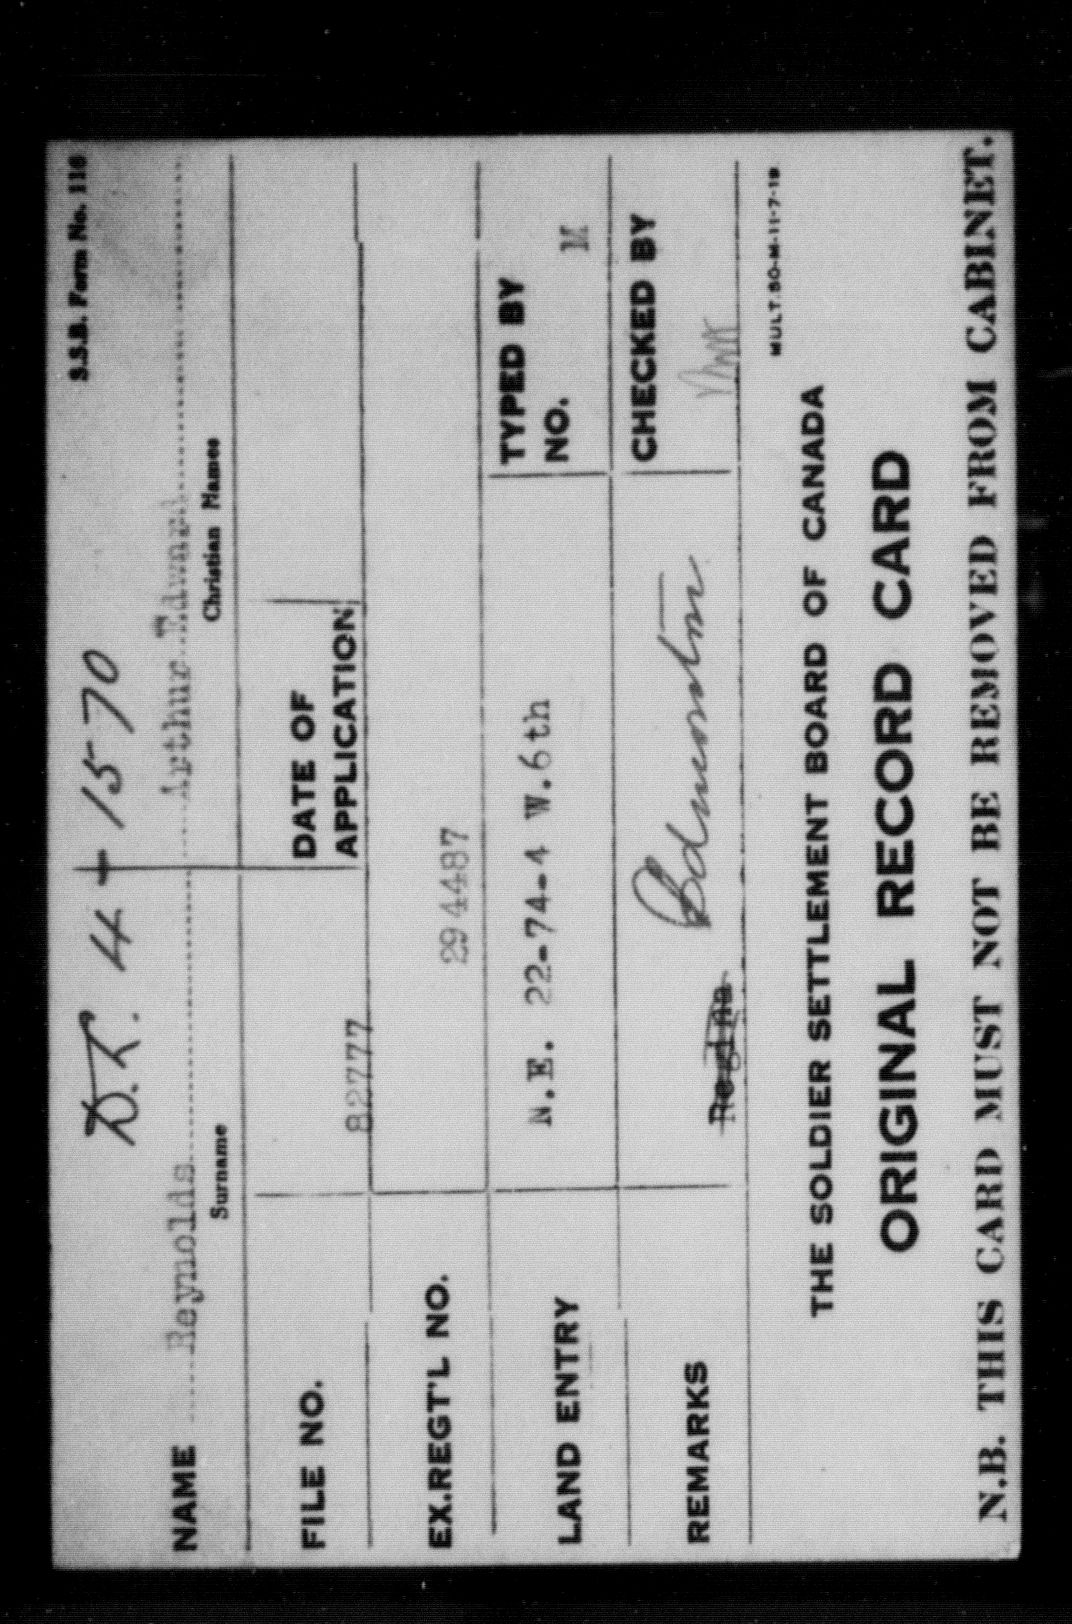 S.S.B. Form No. 116
D.L. 4 - 1570
NAME Reynolds Arthur Edward
Surname Christian Names
FILE NO. 82777 DATE OF APPLICATION
EX.REGT'L NO. 294487
LAND ENTRY N.E. 22-74-4 W.6th TYPED BY NO. M
REMARKS Regina Edmonton CHECKED BY
MULT.50-M-11-7-19
THE SOLDIER SETTLEMENT BOARD OF CANADA
ORIGINAL RECORD CARD
N.B. THIS CARD MUST NOT BE REMOVED FROM CABINET.